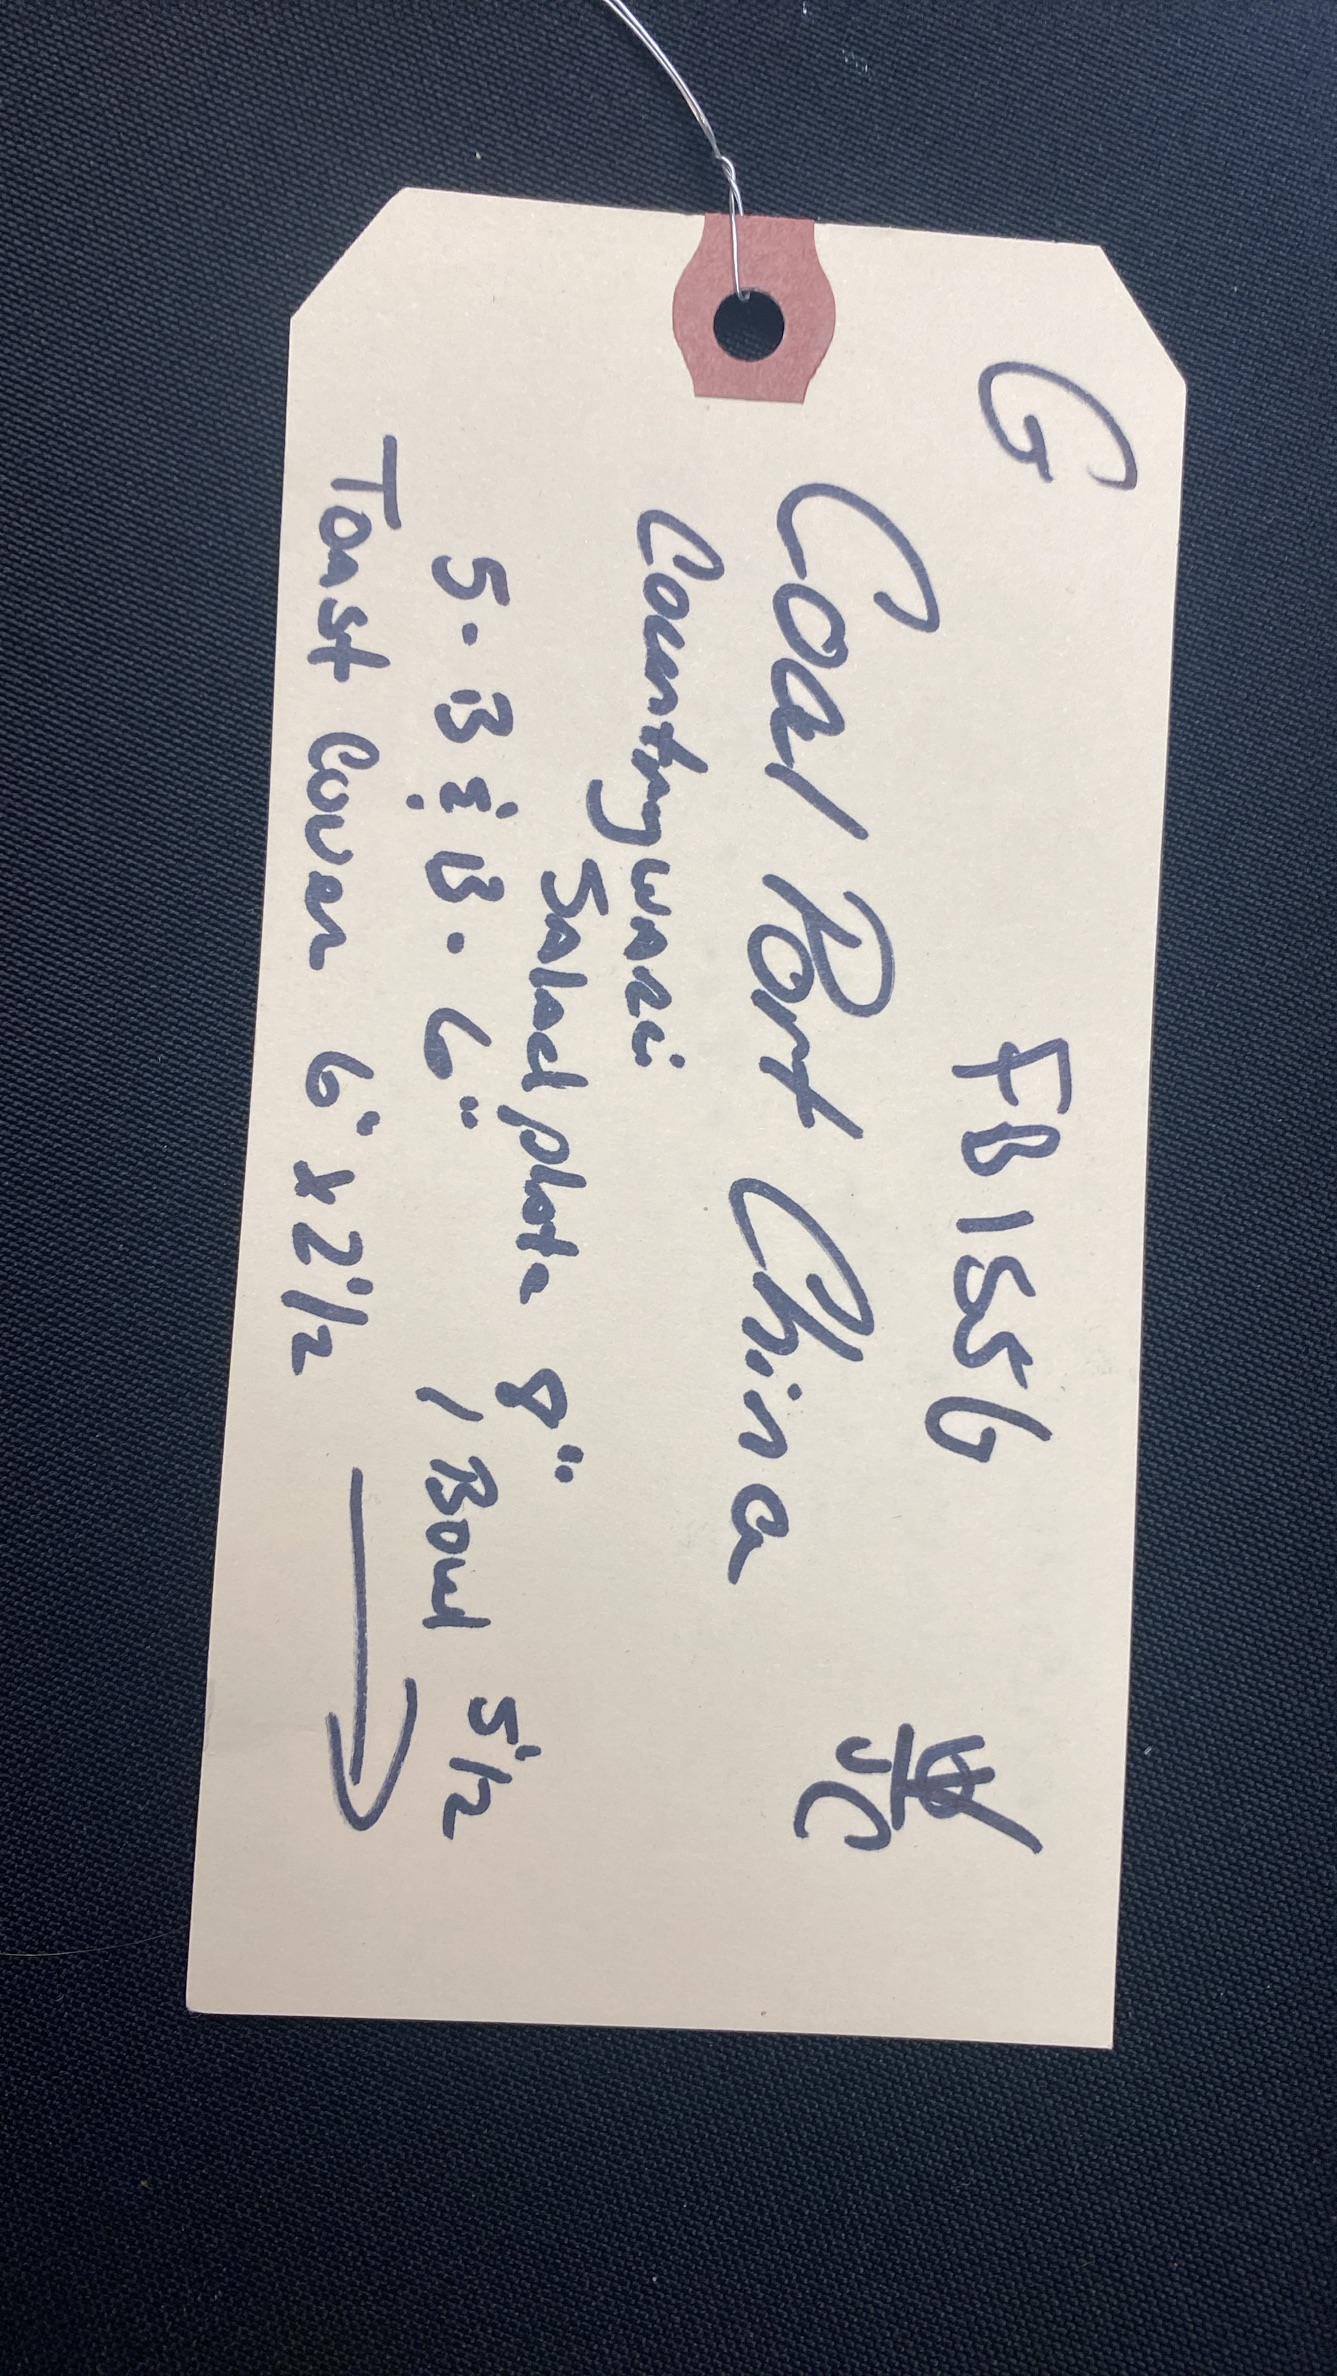 G FB1556
Coal Port China JC
Countryware
Salad plate 8"
5. B & B. 6" 1 Bowl 5 1/2
Toast Cover 6" x 2 1/2 →